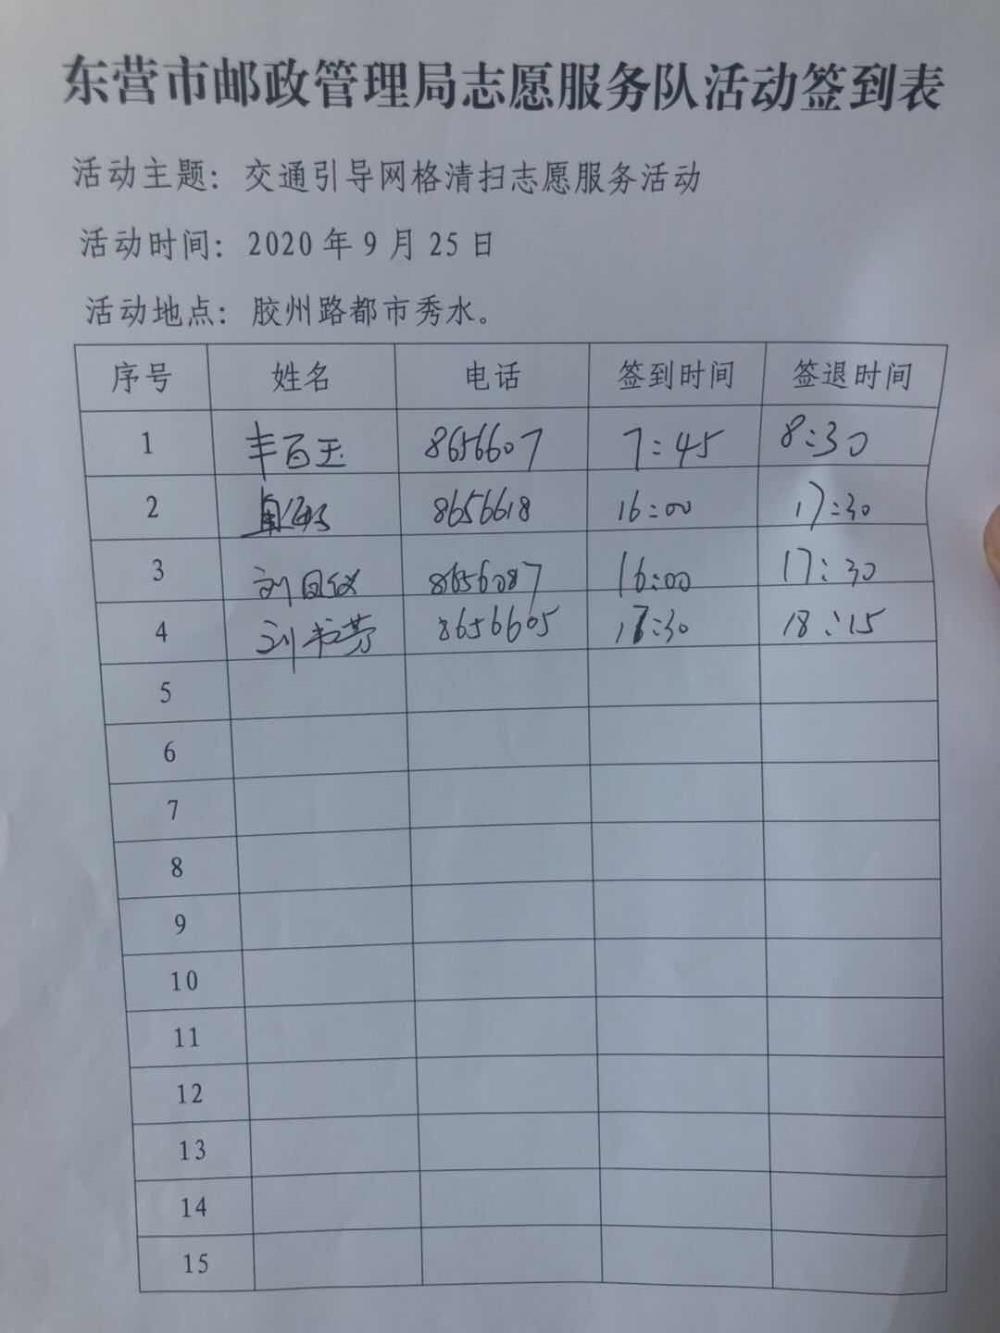 东营市邮政管理局志愿服务队活动签到表
活动主题：交通引导网格清扫志愿服务活动
活动时间：2020 年 9 月 25 日
活动地点：胶州路都市秀水。
序号 姓名 电话 签到时间 签退时间
1 丰百玉 8656607 7:45 8:30
2 8656618 16:00 17:30
3 刘 8656087 16:00 17:30
4 刘 芳 8656605 17:30 18:15
5
6
7
8
9
10
11
12
13
14
15